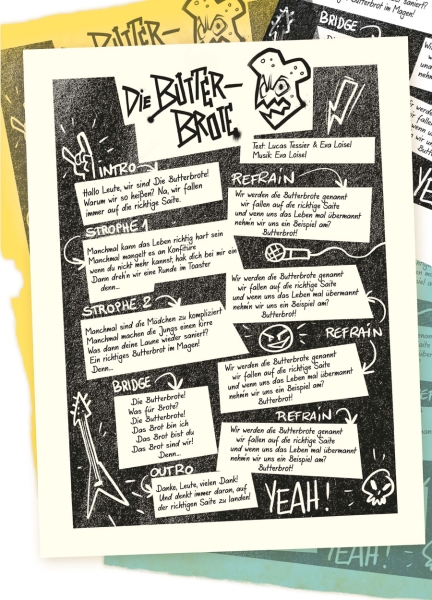 DIE BUTTER-
BROTE
Text: Lucas Tessier & Eva Loisel
Musik: Eva Loisel
INTRO
Hallo Leute, wir sind Die Butterbrote!
Warum wir so heißen? Na, wir fallen
immer auf die richtige Saite.
STROPHE 1
Manchmal kann das Leben richtig hart sein
Manchmal mangelt es an Konfitüre
wenn du nicht mehr kannst, hak dich bei mir ein
Dann dreh'n wir eine Runde im Toaster
denn...
STROPHE 2
Manchmal sind die Mädchen zu kompliziert
Manchmal machen die Jungs einen kirre
Was dann deine Laune wieder saniert?
Ein richtiges Butterbrot im Magen!
Denn...
BRIDGE
Die Butterbrote!
Was für Brote?
Die Butterbrote!
Das Brot bin ich
Das Brot bist du
Das Brot sind wir!
Denn...
OUTRO
Danke, Leute, vielen Dank!
Und denkt immer daran, auf
der richtigen Saite zu landen!
REFRAIN
Wir werden die Butterbrote genannt
wir fallen auf die richtige Saite
und wenn uns das Leben mal übermannt
nehmin wir uns ein Beispiel am?
Butterbrot!
Wir werden die Butterbrote genannt
wir fallen auf die richtige Saite
und wenn uns das Leben mal übermannt
nehmin wir uns ein Beispiel am?
Butterbrot!
REFRAIN
Wir werden die Butterbrote genannt
wir fallen auf die richtige Saite
und wenn uns das Leben mal übermannt
nehmin wir uns ein Beispiel am?
Butterbrot!
REFRAIN
Wir werden die Butterbrote genannt
wir fallen auf die richtige Saite
und wenn uns das Leben mal übermannt
nehmin wir uns ein Beispiel am?
Butterbrot!
YEAH!
BUTTER-
BRIDGE
YEAH!